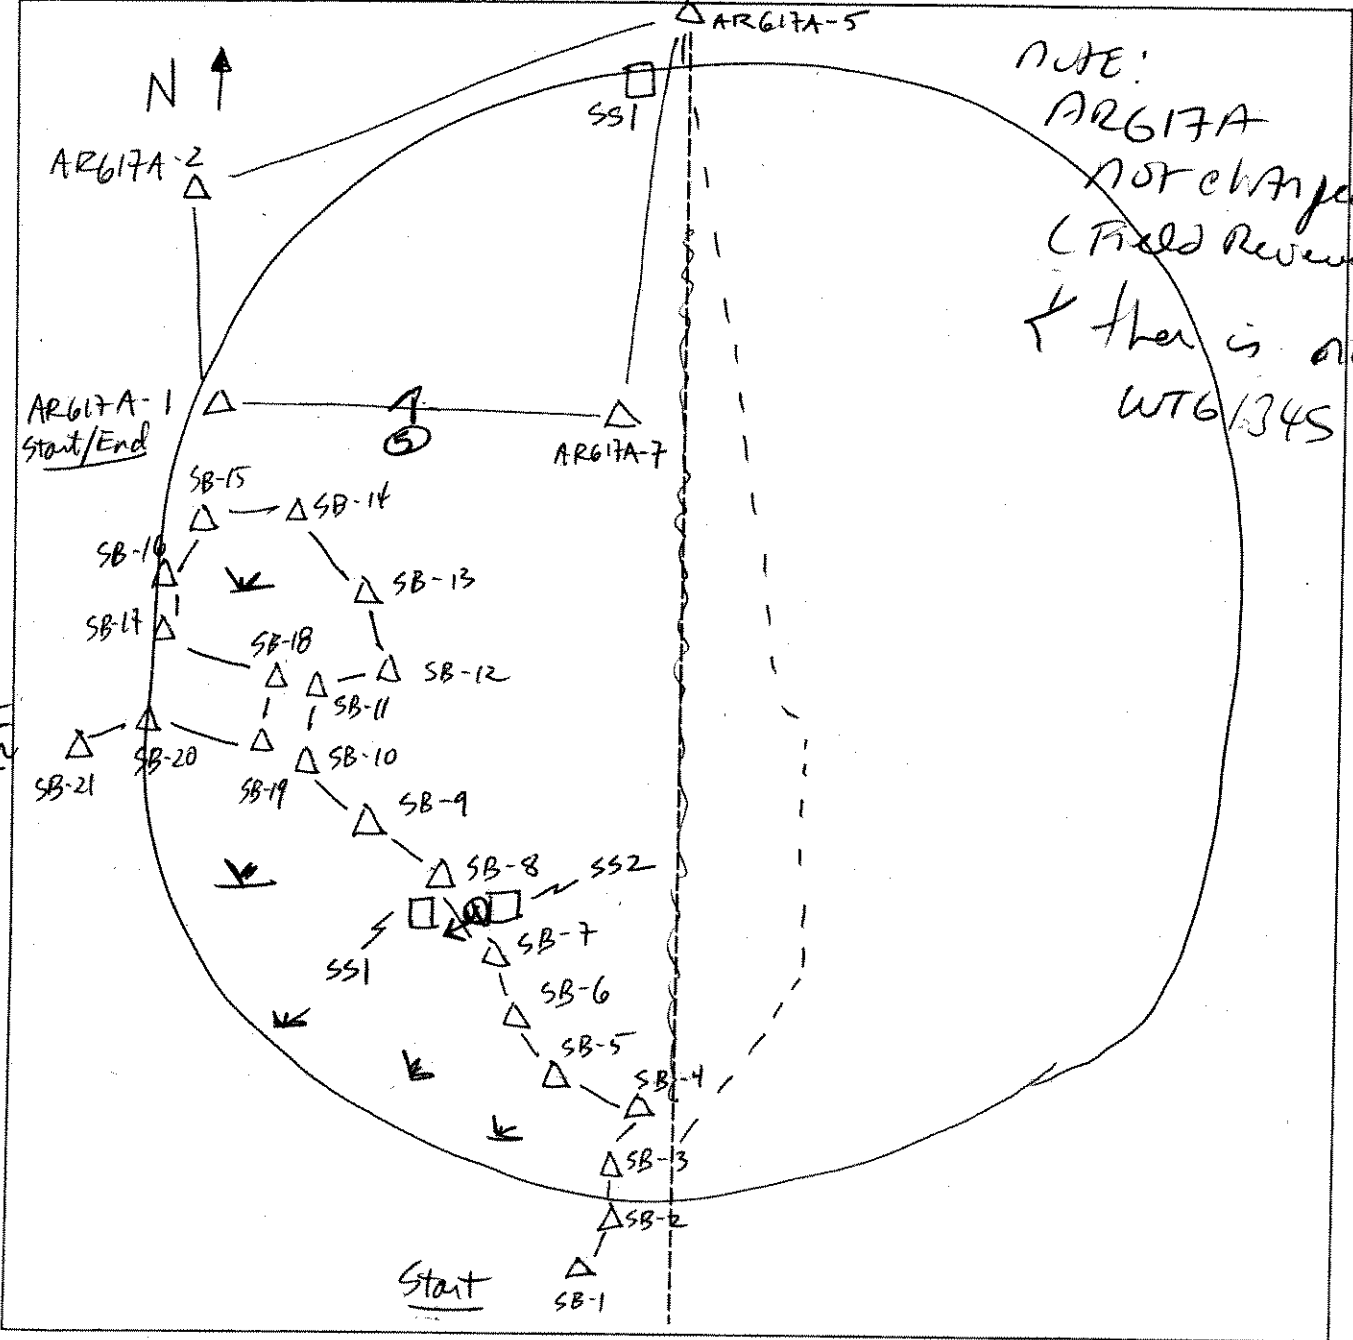 AR617A-5
N
SS1
NOTE:
AR617A
AR617A-2
not
(Field
ther is
WT61345
AR617A-1
Start/End
5
AR617A-7
SB-15
SB-14
SB-16
SB-13
SB-17
SB-18
SB-12
SB-11
SB-20
SB-10
SB-21
SB-19
SB-9
SB-8
SS2
SB-7
SS1
SB-6
SB-5
SB-4
SB-3
SB-2
Start
SB-1